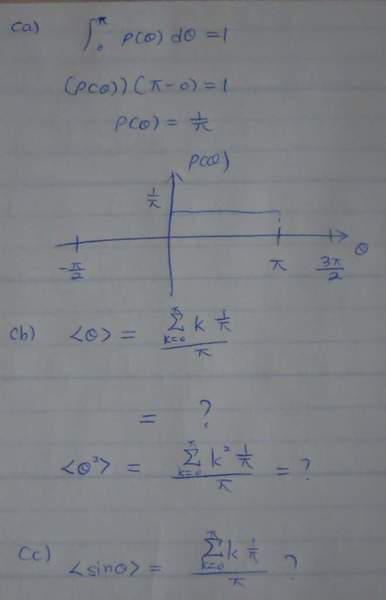 (a) ∫₀^π ρ(θ) dθ = 1
(ρ(θ))(π-0) = 1
ρ(θ) = 1/π
ρ(θ)
1/π
-π/2 π 3π/2 θ
(b) <θ> = (∑_{k=0}^{π} k 1/π)/π
= ?
<θ²> = (∑_{k=0}^{π} k² 1/π)/π = ?
(c) <sinθ> = (∑_{k=0}^{π} k 1/π)/π ?